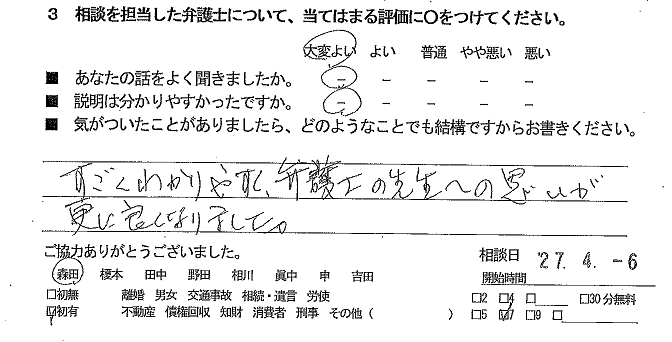 3 相談を担当した弁護士について、当てはまる評価に〇をつけてください。
大変よい よい 普通 やや悪い 悪い
■ あなたの話をよく聞きましたか。 － － － － －
■ 説明は分かりやすかったですか。 － － － － －
■ 気がついたことがありましたら、どのようなことでも結構ですからお書きください。
すごくわかりやすく、弁護士の先生への思いが
更に良くなりました。
ご協力ありがとうございました。
相談日 '27. 4. -6
森田 榎本 田中 野田 相川 眞中 申 吉田
開始時間
□初無 離婚 男女 交通事故 相続・遺言 労使
□2 □4 □ □30分無料
☑初有 不動産 債権回収 知財 消費者 刑事 その他( )
□5 ☑7 □9 □